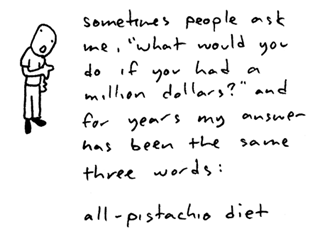 sometimes people ask
me, "what would you
do if you had a
million dollars?" and
for years my answer
has been the same
three words:
all-pistachio diet